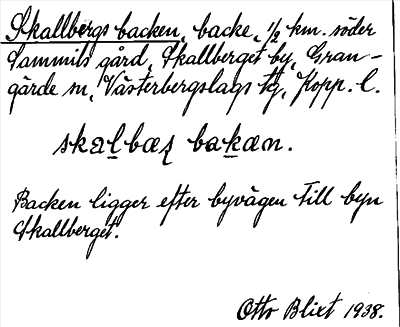 Skallbergs backen, backe, 1/2 km. söder
Sammils gård, Skallberget by, Gran-
gärde sn, Västerbergslags tg, Kopp. l.
skalbæʂ bakæn.
Backen ligger efter byvägen till byn
Skallberget.
Otto Blixt 1938.